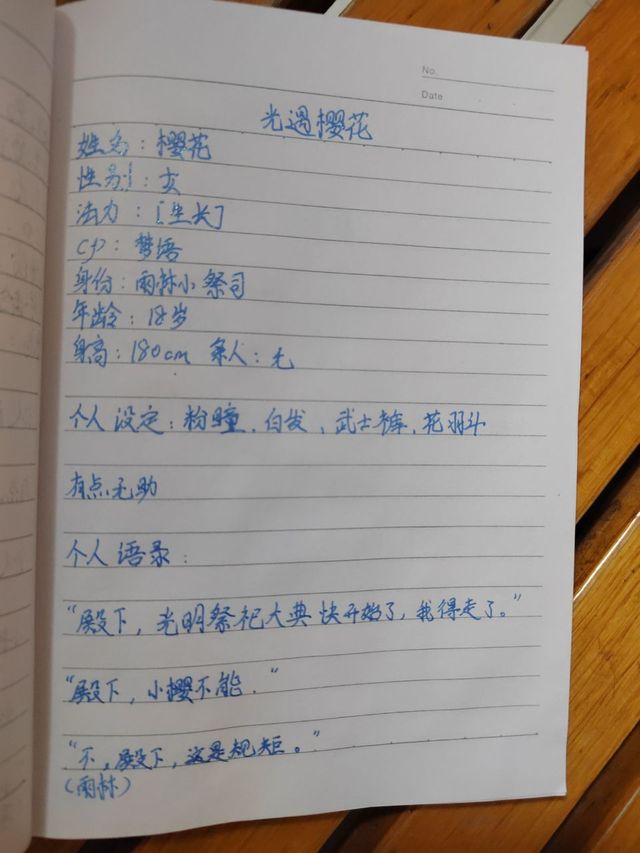 No.
Date
光遇樱花
姓名：樱花
性别：女
法力：[生长]
cp：梦语
身份：雨林小祭司
年龄：18岁
身高：180cm 亲人：无
个人设定：粉瞳、白发、武士裤、花羽斗
有点无助
个人语录：
“殿下，光明祭祀大典快开始了，我得走了。”
“殿下，小樱不能.“
“不，殿下，这是规矩。”
(雨林)